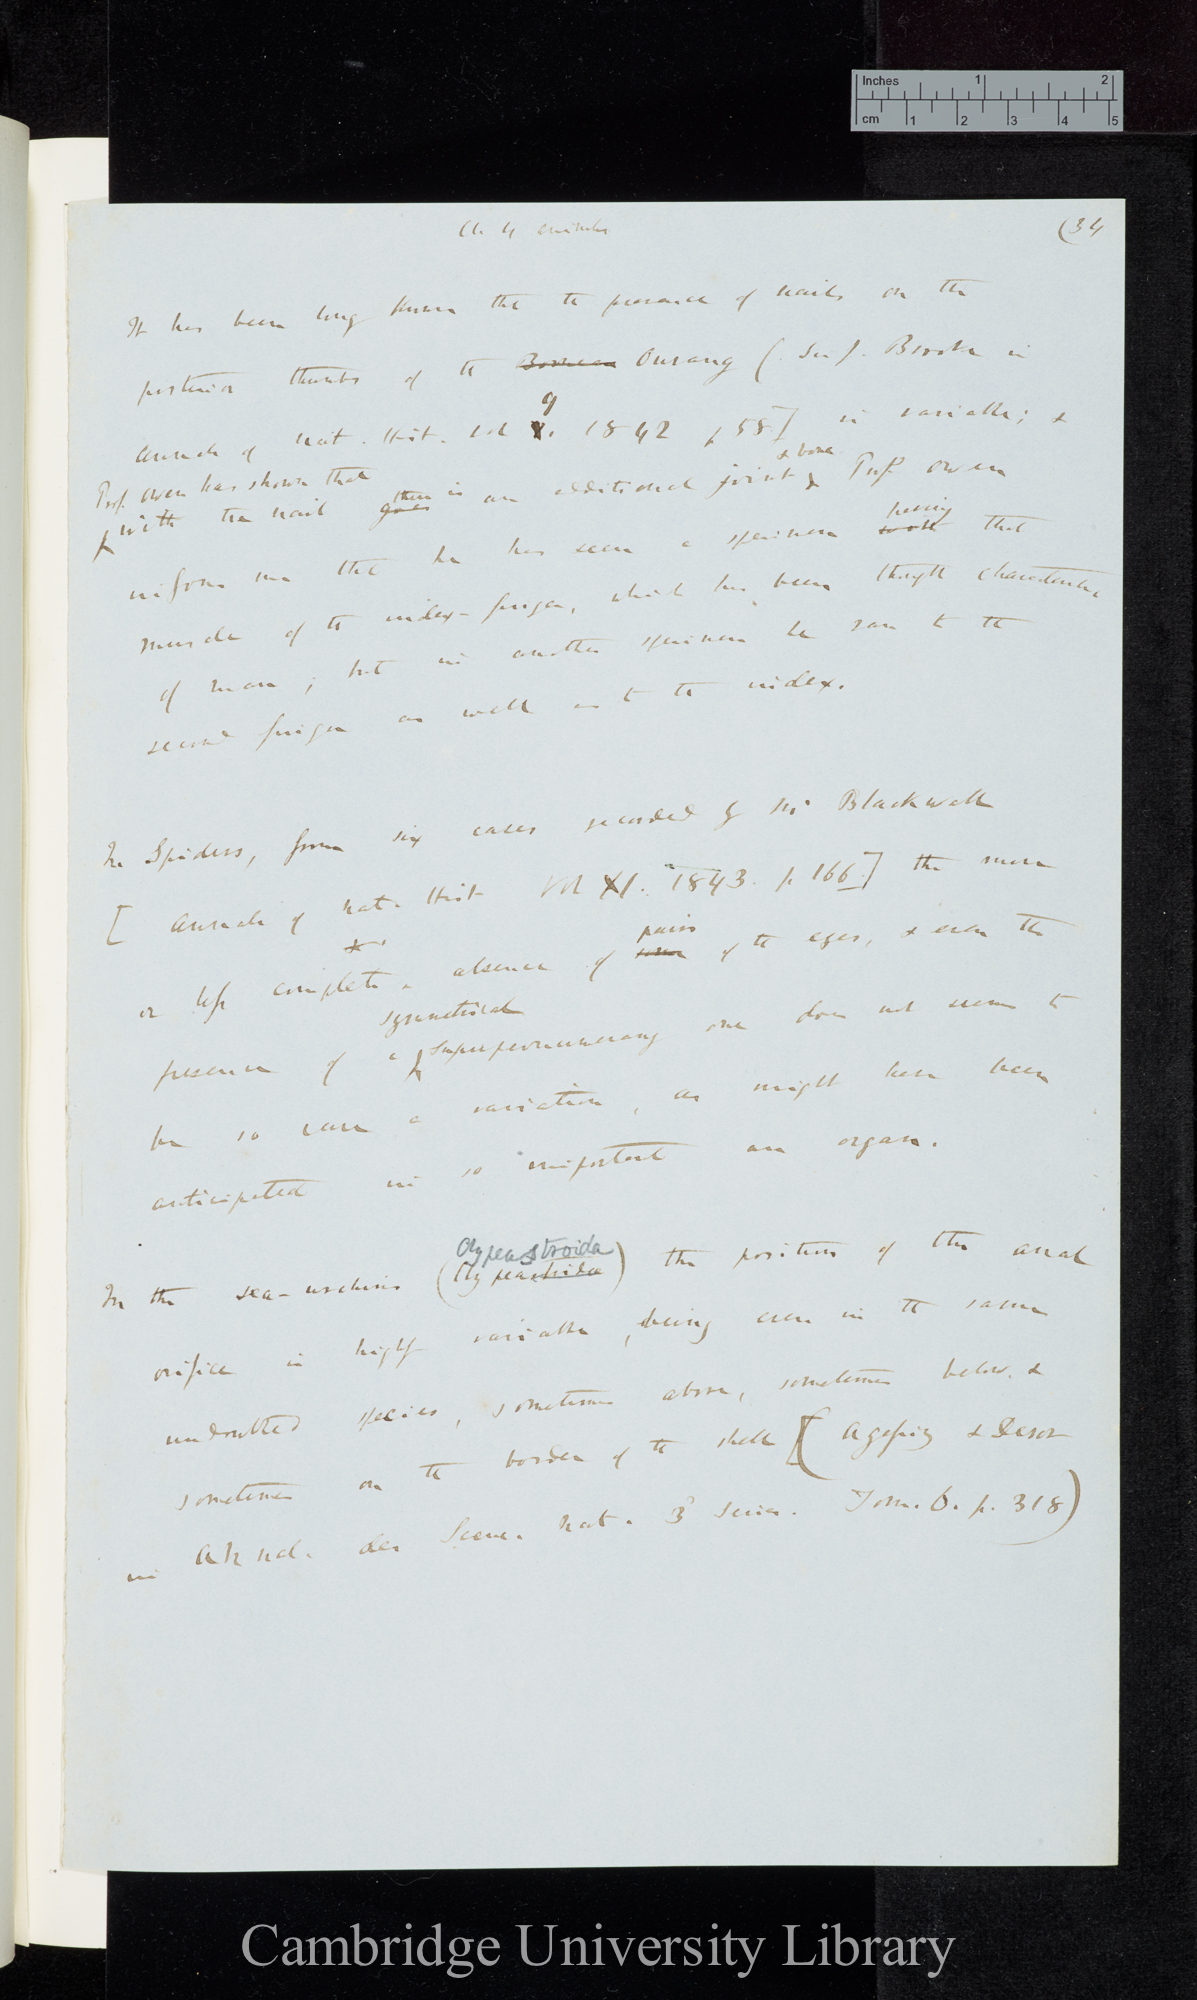 Inches 1 2
cm 1 2 3 4 5
Ch. 4
(34
It has been long known that the presence of nails on the
posterior thumbs of the Bornean Ourang (Sir J. Brooke in
9
Annals of Nat. Hist. vol X. 1842 p 58] is variable; &
Prof. Owen has shown that
& bone
with the nail goes there is an additional joint & Prof Owen
having
informs me that he has seen a specimen that
muscle of the index-finger, which has been thought characteristic
of man; but in another specimen he saw to the
second finger as well as to the index.
In Spiders, from six cases recorded by Mr Blackwall
[Annals of Nat. Hist Vol XI. 1843. p. 166] the more
pairs
or less complete absence of some of the eyes, & even the
symmetrical
presence of a supernumerary one does not seem to
be so rare a variation, as might have been
anticipated in so important an organ.
Clypeastroida
In the sea-urchins (Clypeastridae) the position of the anal
orifice is highly variable, being even in the same
undoubted species, sometimes above, sometimes below, &
sometimes on the border of the shell [(Agassiz & Desor
in Annal. des Scienc. Nat. 3 series. Tom. 6. p. 318)
Cambridge University Library